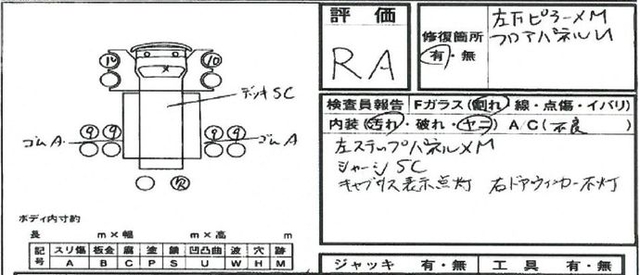 評価
RA
修復箇所
有・無
左下ピラーメM
フロアパネルU
検査員報告 Fガラス(割れ 線・点傷・イバリ)
内装(汚れ・破れ・ヤニ) A/C(不良)
左ステップパネルメM
シャーシSC
キャブサス表示点灯 右ドアウィンカー不灯
10 10
デッキSC
9 9 9 9
ゴムA ゴムA
ボディ内寸約
長 m×幅 m×高 m
記号 スリ傷 板金 腐 塗 錆 凹凸曲 波 穴 跡
A B C P S U W H M
ジャッキ 有・無 工具 有・無